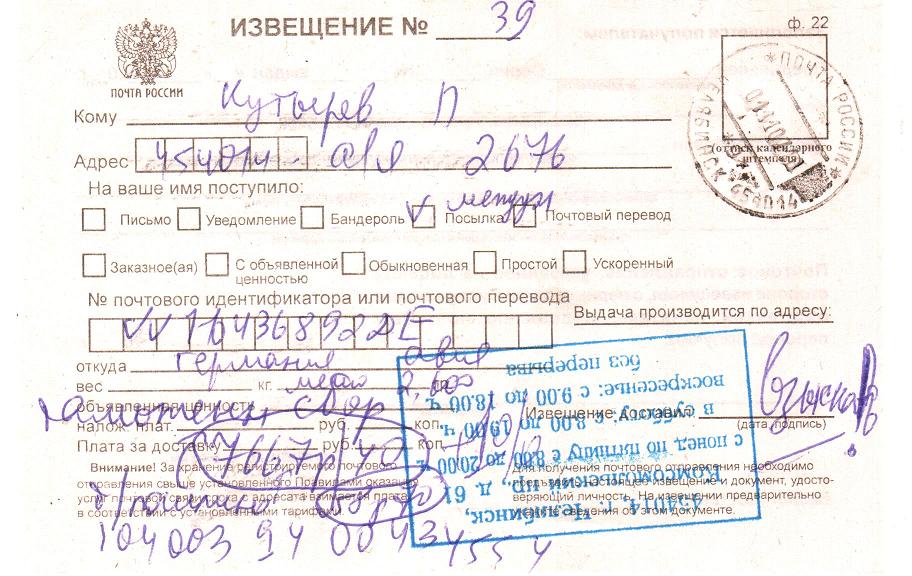 ИЗВЕЩЕНИЕ № 39
ф. 22
ПОЧТА РОССИИ
Кому Кутырев П
(оттиск календарного штемпеля)
ПОЧТА РОССИИ
ЧЕЛЯБИНСК 454014
Адрес 454014 - а/я 2676
На ваше имя поступило:
Письмо Уведомление Бандероль Посылка Почтовый перевод
Заказное(ая) С объявленной ценностью Обыкновенная Простой Ускоренный
№ почтового идентификатора или почтового перевода
Выдача производится по адресу:
откуда Германия авиа
вес кг.
объявленной ценности
налож. плат. руб. коп.
Извещение доставил
(дата, подпись)
Плата за доставку руб. коп.
Внимание! За хранение регистрируемого почтового
отправления свыше установленного Правилами оказания
услуг почтовой связи срока с адресата взимается плата
в соответствии с установленными тарифами.
Для получения почтового отправления необходимо
предъявить настоящее извещение и документ, удосто-
веряющий личность. На извещении предварительно
укажите сведения об этом документе.
454014 г. Челябинск,
Комсомольский пр., д. 61
с понед. по пятницу с 8.00 до 20.00
в субботу с 8.00 до 19.00 ч.
воскресенье: с 9.00 до 18.00 ч.
без перерыва